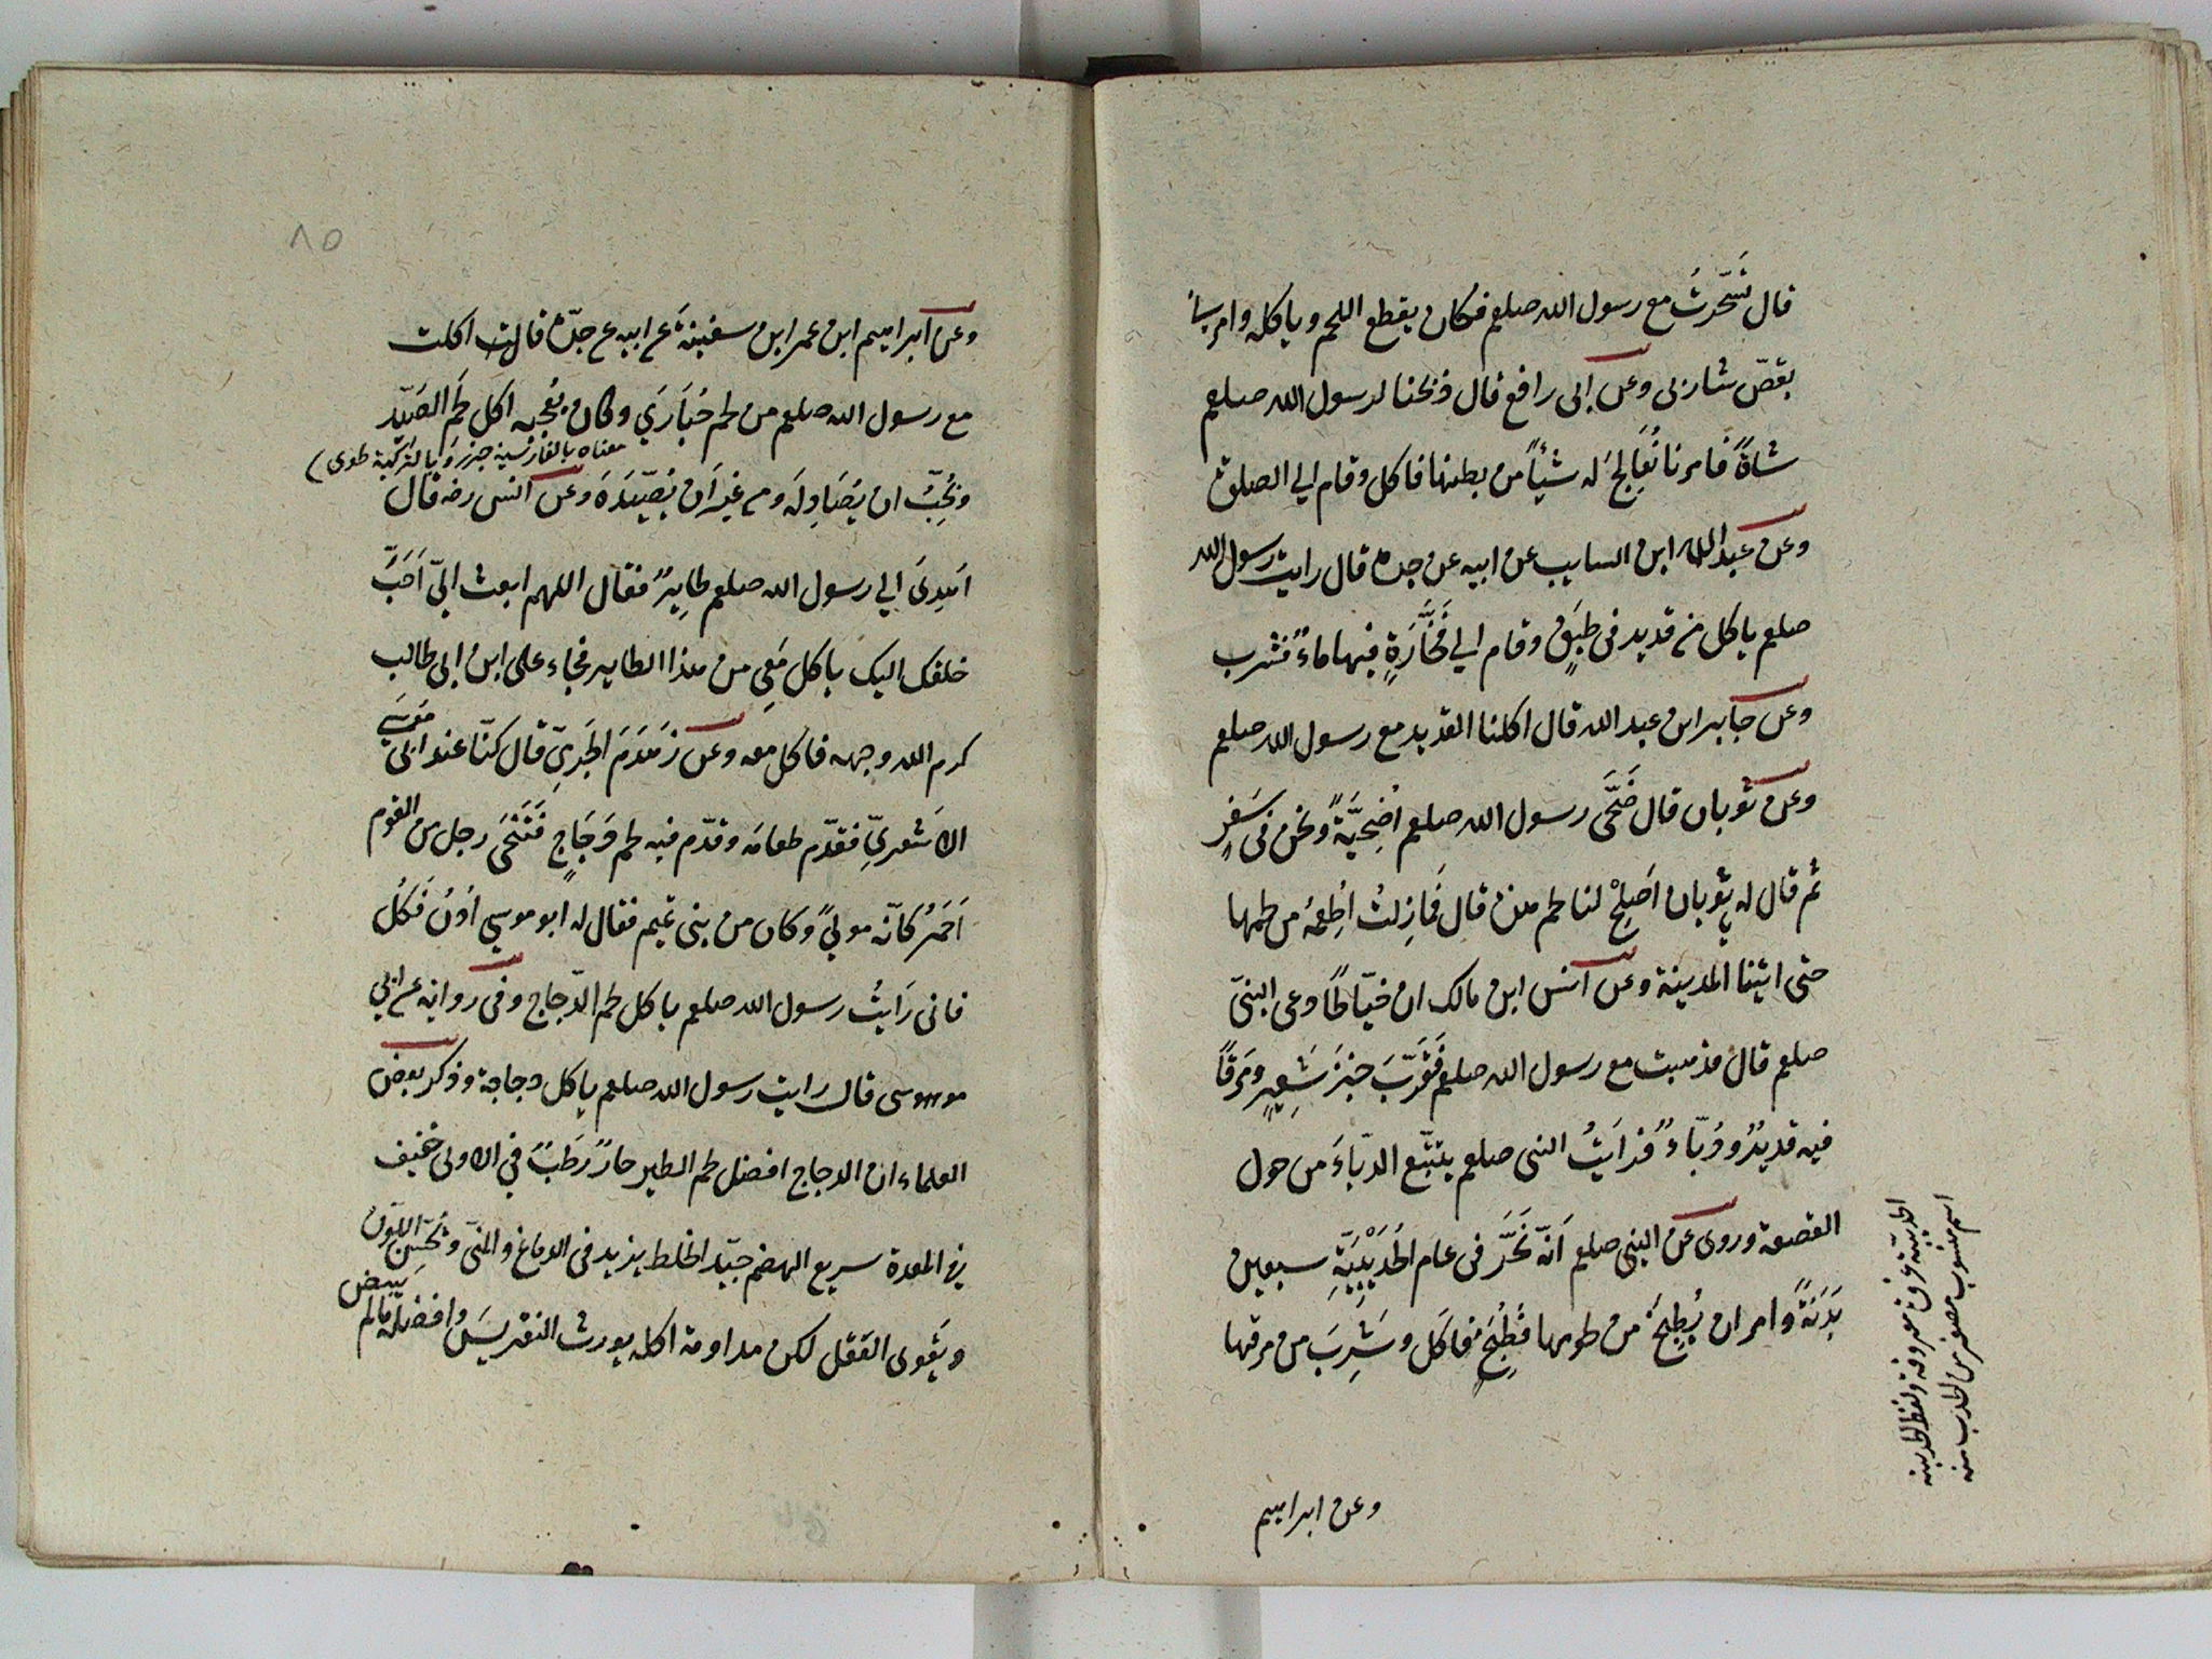 قال تسّحرتُ مع رسول الله صلعم فكان يقطع اللحم وياكله وامر
بقصّ شاربى وعن ابى رافع قال ذبحنا لرسول الله صلعم
شاةً فامرنا نُعَالِجُ له شيئاً من بطنها فاكل وقام الي الصلوة
وعن عبد الله ابن السايب عن ابيه عن جده قال رايت رسول الله
صلعم ياكل من قديد فى طبَقٍ وقام الي فَخَّارَةٍ فيها ماءٌ فشرب
وعن جابر ابن عبد الله قال اكلنا القديد مع رسول الله صلعم
وعن ثوبان قال ضَحَّى رسول الله صلعم اُضحِيَّةً ونحن فى سَفَرٍ
ثم قال له يثوبان اَصلِحْ لنا لحم هذه قال فَمازِلتُ اُطعِمُهُ من لحمها
حتى اتينا المدينة وعن انس ابن مالك ان خيّاطًا دعى النبىّ
صلعم قال فذهبت مع رسول الله صلعم فَقَرَّبَ خبزَ شَعِيرٍ ومَرَقًا
فيه قديدٌ ودُبّاءٌ فرايتُ النبى صلعم يتتبّع الدبّاءَ من حول
القصعة وروى عن النبى صلعم اَنّه نَحَرَ فى عام الحُدَيْبِيَّةِ سبعين
بَدَنَةً وامر ان يُطبخَ من لحومها فطُبِخَ فاكل وشَرِبَ من مرقها
اسم منسوب مصغر من الحدب
وعن ابراهيم
٨٥
وعن ابراهيم ابن عمر ابن سفينة عن ابيه عن جدّه قالت اكلت
مع رسول الله صلعم من لحم حُبَارَي وكان يُعجبه اكل لحم الصَيد
معناه بالفارسية جرز وبالتركية طوى
ونُحِبُّ ان يُصَادِلَه ومن غير ان يصّيدَهُ وعن انس رضه قال
اُهدِىَ الي رسول الله صلعم طايرٌ فقال اللهم ابعث اليّ اَحَبَّ
خلقك اليك ياكل مَعِى من هذا الطاير فجاء على ابن ابى طالب
كرم الله وجهه فاكل معه وعن زَهدَمَ الجَرمِىّ قال كنّا عند ابى موسى
الاشعريّ فقدّم طعامه وقدّم فيه لحم دَجَاجٍ فَتَنَحَّى رجل من القوم
اَحمَرُ كانّه مولىً وكان من بنى تميم فقال له ابو موسي اُدنُ فَكُل
فانى رَايتُ رسول الله صلعم ياكل لحم الدّجاج وفى رواية عن ابي
موسى قال رايت رسول الله صلعم ياكل دجاجة وذكر بعض
العلماء ان الدجاج افضل لحم الطير حارٌ رَطبٌ في الاولى خفيف
في المعدة سريع الهضم جيّد الخلط يزيد فى الدماغ والمنىّ ويُحَسِّنُ اللون
ويقوى العَقل لكن مداومة اكله يورث النقريس وافضله مالم يبيض